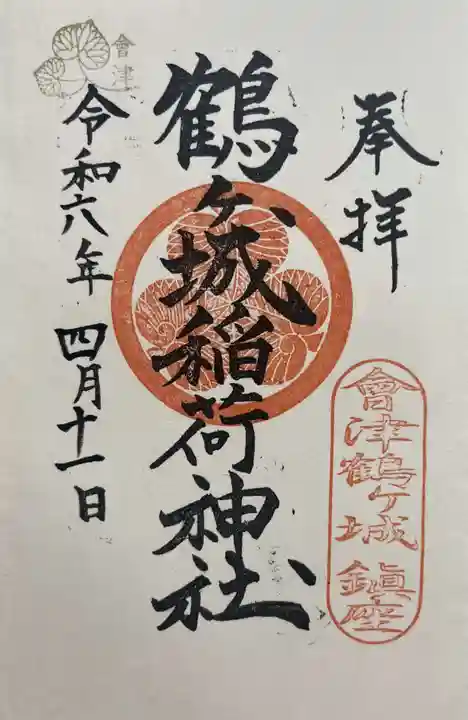 奉拝
會津鶴ヶ城鎮座
鶴ヶ城稲荷神社
令和六年四月十一日
會津